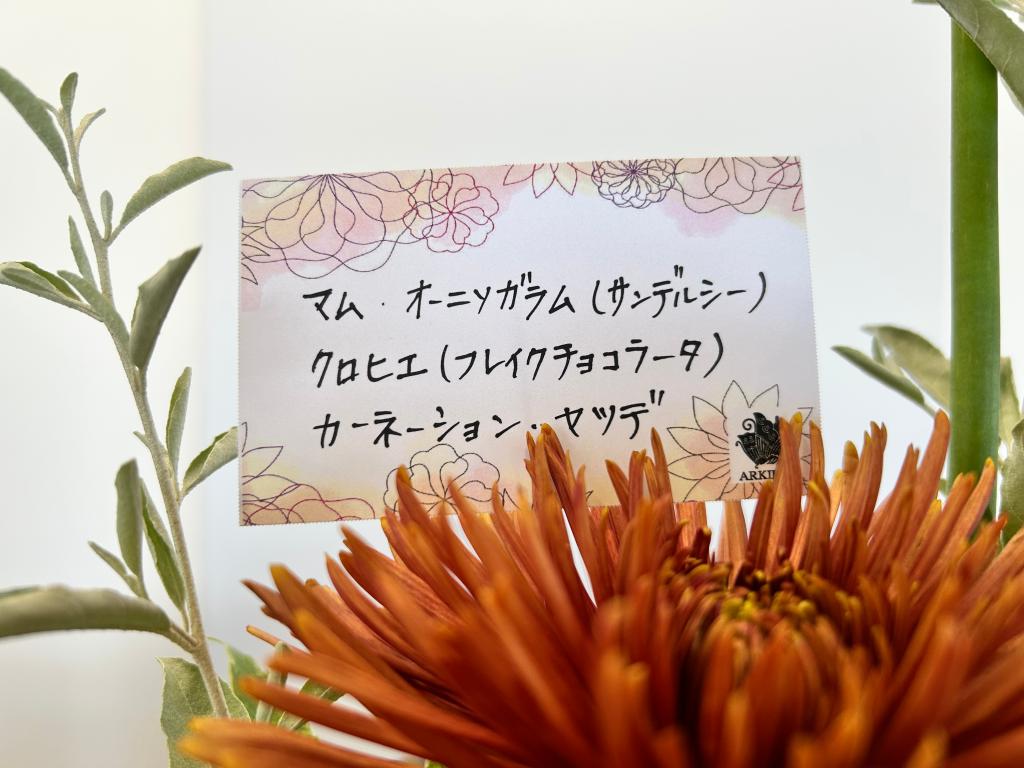 マム・オーニソガラム(サンデルシー)
クロヒエ(フレイクチョコラータ)
カーネーション・ヤツデ